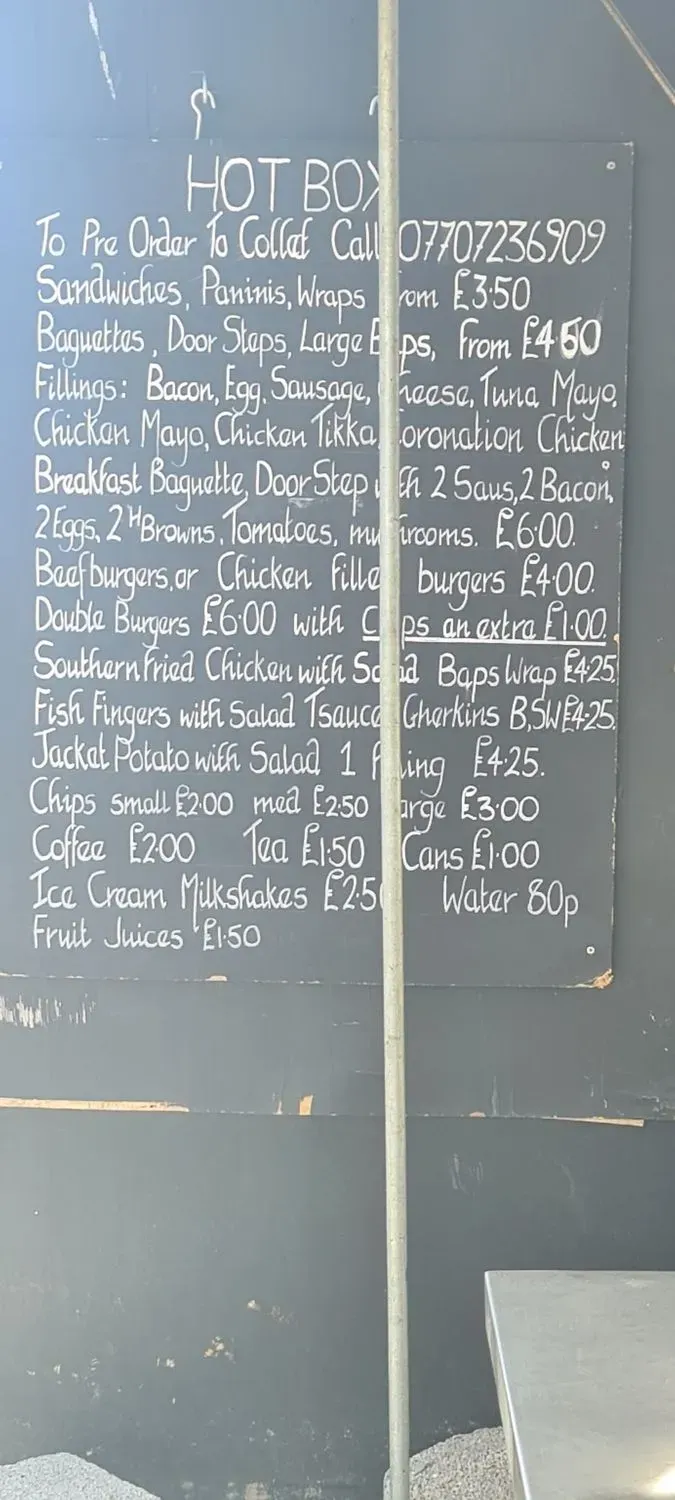 HOT BOX
To Pre Order To Collet Call 07707236909
Sandwiches, Paninis, Wraps from £3.50
Baguettes, Door Steps, Large Baps, from £4.50
Fillings: Bacon, Egg, Sausage, Cheese, Tuna Mayo,
Chicken Mayo, Chicken Tikka, Coronation Chicken
Breakfast Baguette, Door Step with 2 Saus, 2 Bacon,
2 Eggs, 2 H Browns, Tomatoes, mushrooms. £6.00.
Beefburgers, or Chicken fillet burgers £4.00.
Double Burgers £6.00 with Chips an extra £1.00.
Southern Fried Chicken with Salad Baps Wrap £4.25
Fish Fingers with Salad Tsauce Gherkins B,SW £4.25.
Jacket Potato with Salad 1 filling £4.25.
Chips small £2.00 med £2.50 large £3.00
Coffee £2.00 Tea £1.50 Cans £1.00
Ice Cream Milkshakes £2.50 Water 80p
Fruit Juices £1.50